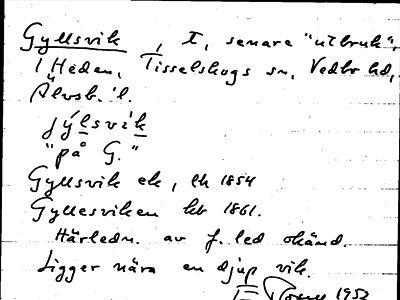 Gyllsvik, t, senare "utbruk",
i Heden, Tisselskogs sn, Vedbo hd,
Älvsb. l.
jýlsvik
"på G."
Gyllsvik ek, lk 1854
Gyllesviken kb 1861.
Härledn. av f. led okänd.
Ligger nära en djup vik.
1952